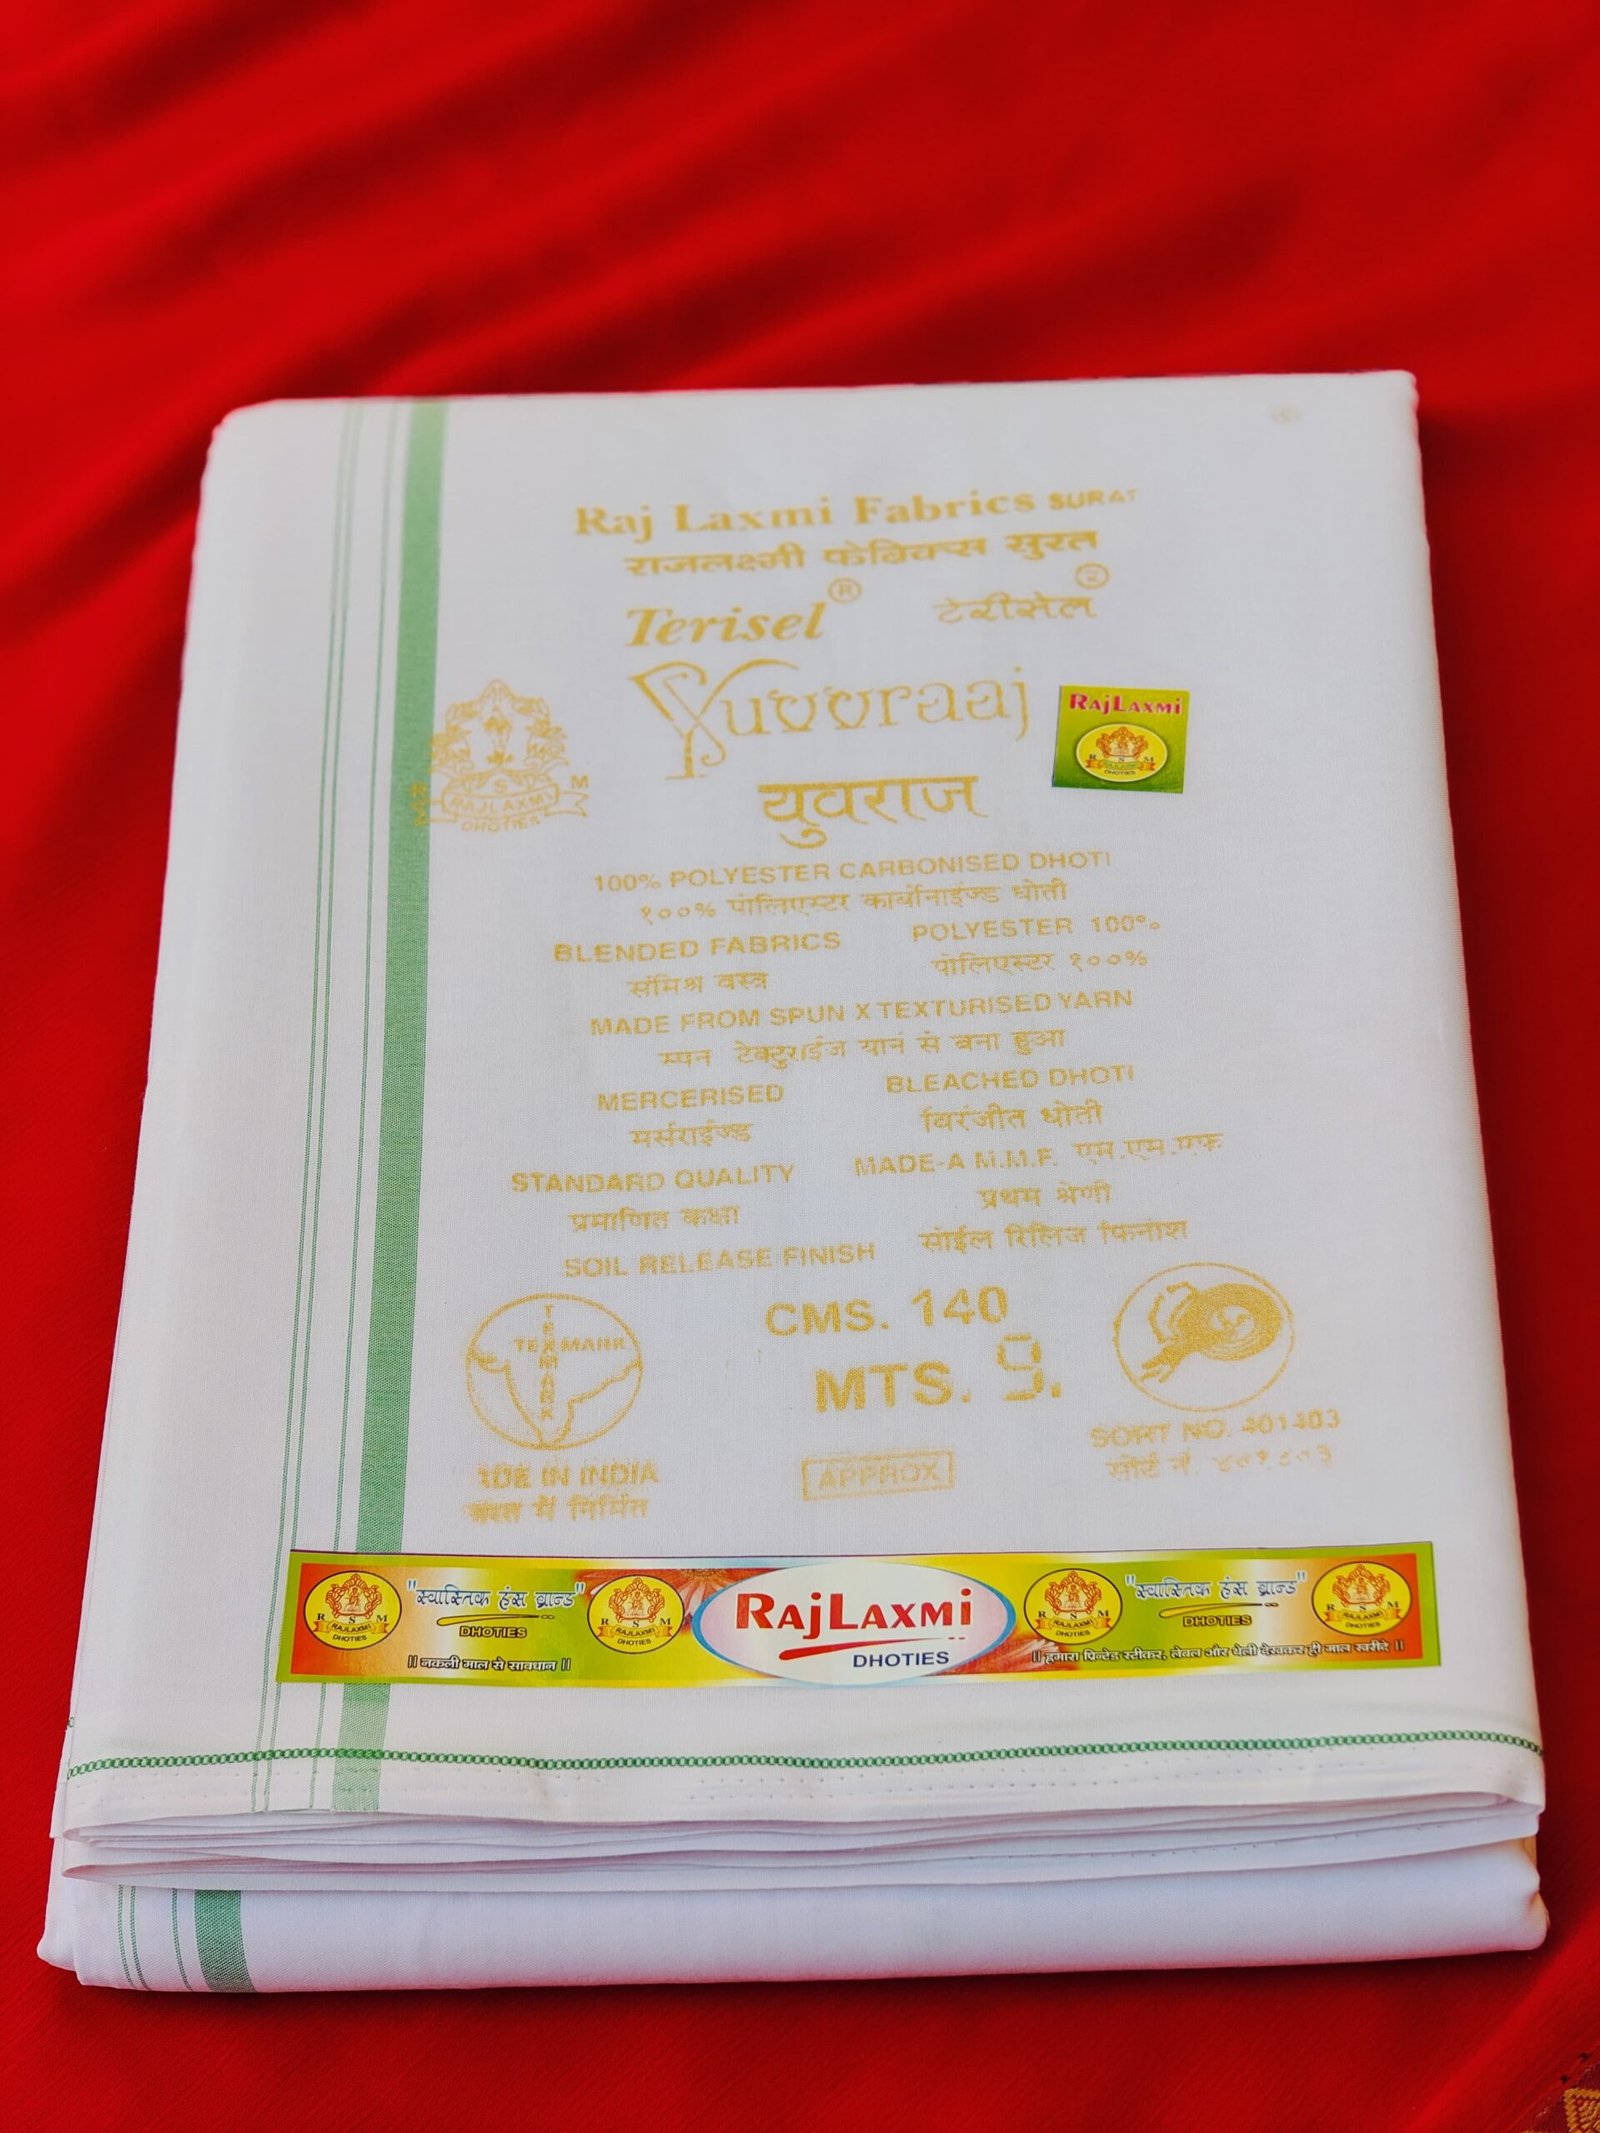 Raj Laxmi Fabrics SURAT
राजलक्ष्मी फेब्रिक्स सुरत
Terisel® टेरीसेल®
Yuvvraaj
युवराज
RAJLAXMI
R S M
RAJLAXMI
DHOTIES
S M
RAJLAXMI
DHOTIES
100% POLYESTER CARBONISED DHOTI
१००% पोलिएस्टर कार्बोनाइज्ड धोती
BLENDED FABRICS POLYESTER 100%
संमिश्र वस्त्र पोलिएस्टर १००%
MADE FROM SPUN X TEXTURISED YARN
स्पन टेक्टुराईज यार्न से बना हुआ
MERCERISED BLEACHED DHOTI
मर्सराईज्ड विरंजीत धोती
STANDARD QUALITY MADE-A M.M.F. एम.एम.एफ
प्रमाणित कक्षा प्रथम श्रेणी
SOIL RELEASE FINISH सोईल रिलिज फिनीश
TEXMARK
TEXMARK
CMS. 140
MTS. 9.
APPROX
SORT NO. 401403
सोर्ट नं.
IN INDIA
में निर्मित
R S M
RAJLAXMI
DHOTIES
"स्वास्तिक हंस ब्रान्ड"
DHOTIES
॥ नकली माल से सावधान ॥
R S M
RAJLAXMI
DHOTIES
RAJLAXMI
DHOTIES
R S M
RAJLAXMI
DHOTIES
"स्वास्तिक हंस ब्रान्ड"
DHOTIES
॥ हमारा प्रिन्टेड स्टीकर, लेबल और थैली देखकर ही माल खरीदे ॥
R S M
RAJLAXMI
DHOTIES